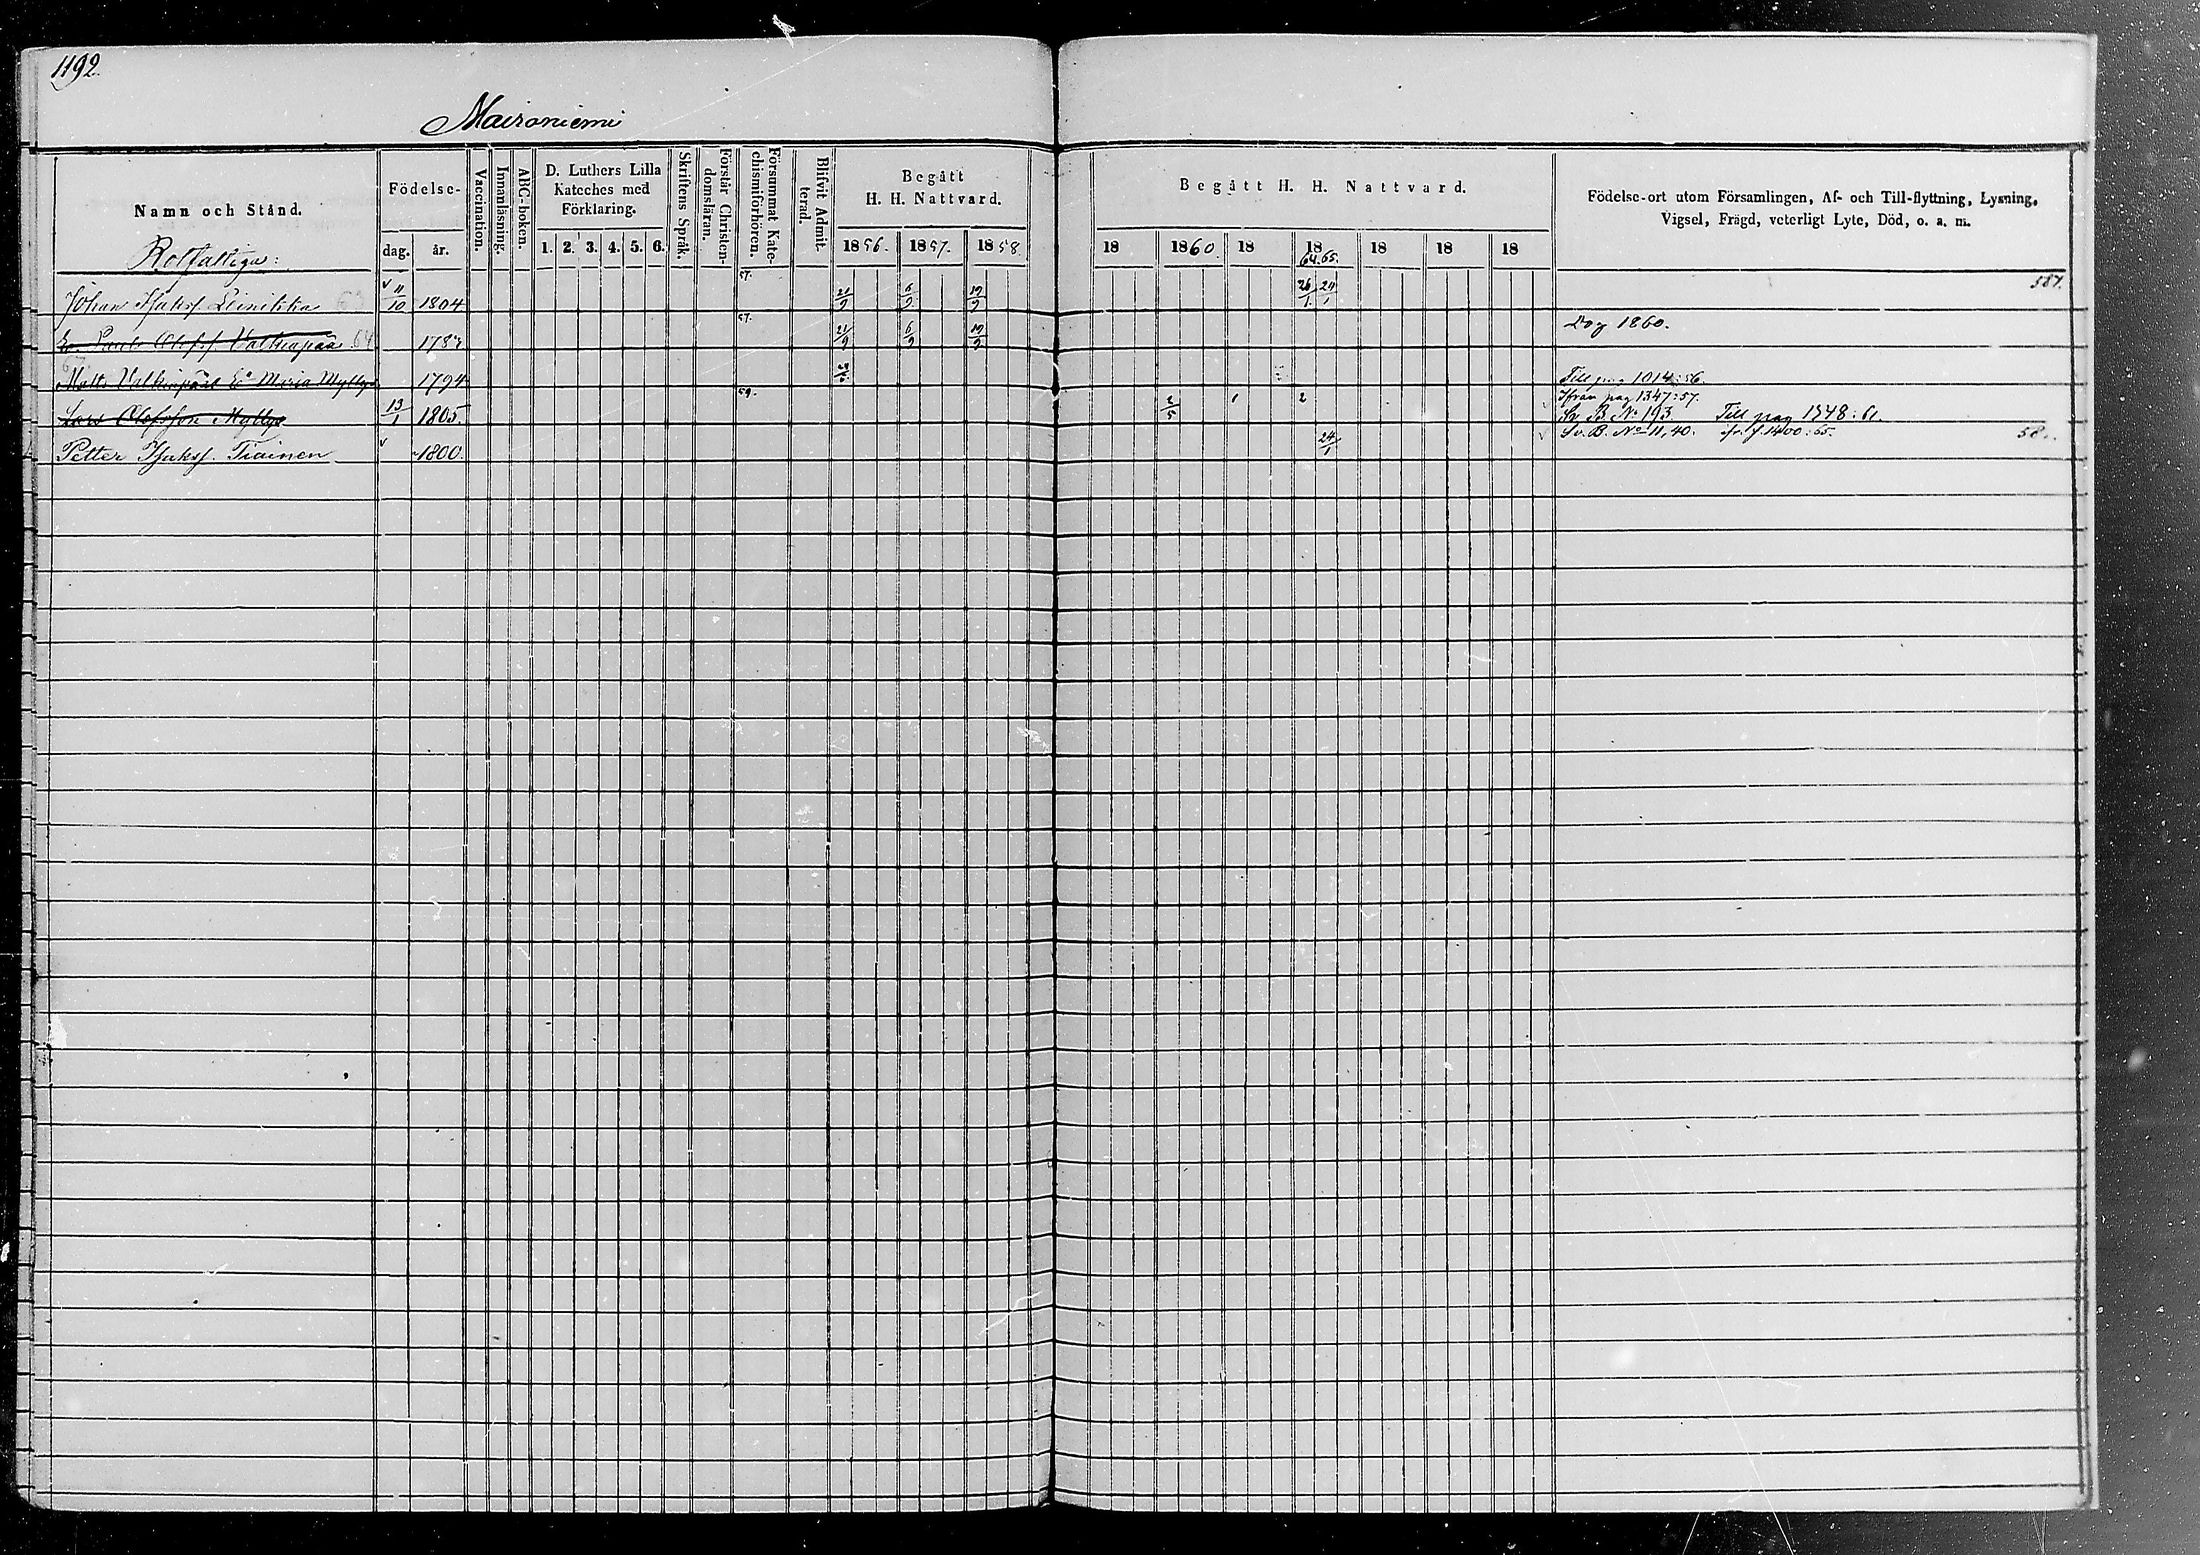 1192
Maironiemi
Namn och Stånd.
Födelse-
dag. år.
Vaccination.
Innanläsning.
ABC-boken.
D. Luthers Lilla
Kateches med
Förklaring.
1. 2. 3. 4. 5. 6.
Skriftens Språk.
Förstår Christen-
domsläran.
Försummat Kate-
chismiförhören.
Blifvit Admit-
terad.
Begått
H. H. Nattvard.
1856. 1857. 1858.
Begått H. H. Nattvard.
18 1860. 18 18 64.65. 18 18 18
Födelse-ort utom Församlingen, Af- och Till-flyttning, Lysning,
Vigsel, Frägd, veterligt Lyte, Död, o. a. m.
Rotfattiga:
Johan Isaksf. Leinikka 11/10 1804 57. 21/9 6/9 19/9 26/1. 24/1 587.
Olofsf. Valkiapää 57. 21/9 6/9 19/9 Dog 1860.
Matts Valkiapää Ea Maria Myllys 1794 Till pag 1014:56.
Lars Olofsson Myllys 13/1 1805. 59. 2/5 1 2 Ifrån pag 1347:57.
Sv B. No 193 Till pag 1348:61.
Petter Isaksf. Tiainen 1800. 24/1 Sv. B. No 11,40. 1400:65.